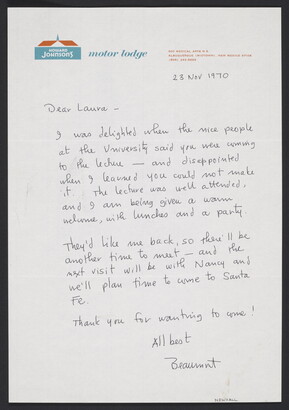 HOWARD
JOHNSON'S
motor lodge
23 Nov 1970
Dear Laura -
I was delighted when the nice people
at the University said you were coming
to the lecture — and disappointed
when I learned you could not make
it. The lecture was well attended,
and I am being given a warm
welcome, with lunches and a party.
They'd like me back, so there'll be
another time to meet — and the
next visit will be with Nancy and
we'll plan time to come to Santa
Fe.
Thank you for wanting to come!
All best
Beaumont
NEWHALL